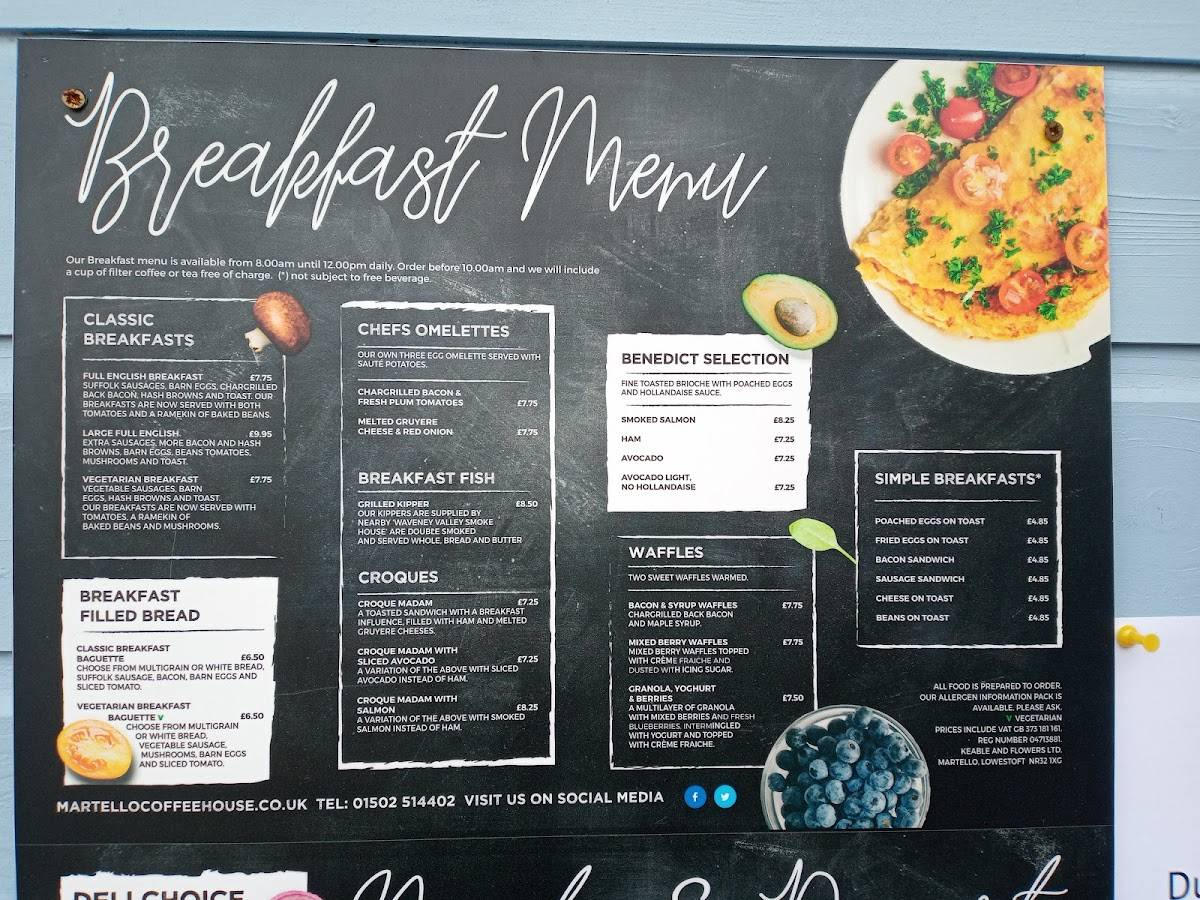 Breakfast Menu
Our Breakfast menu is available from 8.00am until 12.00pm daily. Order before 10.00am and we will include
a cup of filter coffee or tea free of charge. (*) not subject to free beverage.
CLASSIC
BREAKFASTS
FULL ENGLISH BREAKFAST £7.75
SUFFOLK SAUSAGES, BARN EGGS, CHARGRILLED
BACK BACON, HASH BROWNS AND TOAST. OUR
BREAKFASTS ARE NOW SERVED WITH BOTH
TOMATOES AND A RAMEKIN OF BAKED BEANS.
LARGE FULL ENGLISH. £9.95
EXTRA SAUSAGES, MORE BACON AND HASH
BROWNS, BARN EGGS, BEANS TOMATOES,
MUSHROOMS AND TOAST.
VEGETARIAN BREAKFAST £7.75
VEGETABLE SAUSAGES, BARN
EGGS, HASH BROWNS AND TOAST.
OUR BREAKFASTS ARE NOW SERVED WITH
TOMATOES, A RAMEKIN OF
BAKED BEANS AND MUSHROOMS.
BREAKFAST
FILLED BREAD
CLASSIC BREAKFAST
BAGUETTE £6.50
CHOOSE FROM MULTIGRAIN OR WHITE BREAD,
SUFFOLK SAUSAGE, BACON, BARN EGGS AND
SLICED TOMATO.
VEGETARIAN BREAKFAST
BAGUETTE V £6.50
CHOOSE FROM MULTIGRAIN
OR WHITE BREAD,
VEGETABLE SAUSAGE,
MUSHROOMS, BARN EGGS
AND SLICED TOMATO.
CHEFS OMELETTES
OUR OWN THREE EGG OMELETTE SERVED WITH
SAUTÉ POTATOES.
CHARGRILLED BACON &
FRESH PLUM TOMATOES £7.75
MELTED GRUYERE
CHEESE & RED ONION £7.75
BREAKFAST FISH
GRILLED KIPPER £8.50
OUR KIPPERS ARE SUPPLIED BY
NEARBY 'WAVENEY VALLEY SMOKE
HOUSE' ARE DOUBLE SMOKED
AND SERVED WHOLE, BREAD AND BUTTER
CROQUES
CROQUE MADAM £7.25
A TOASTED SANDWICH WITH A BREAKFAST
INFLUENCE, FILLED WITH HAM AND MELTED
GRUYERE CHEESES.
CROQUE MADAM WITH
SLICED AVOCADO £7.25
A VARIATION OF THE ABOVE WITH SLICED
AVOCADO INSTEAD OF HAM.
CROQUE MADAM WITH
SALMON £8.25
A VARIATION OF THE ABOVE WITH SMOKED
SALMON INSTEAD OF HAM.
BENEDICT SELECTION
FINE TOASTED BRIOCHE WITH POACHED EGGS
AND HOLLANDAISE SAUCE.
SMOKED SALMON £8.25
HAM £7.25
AVOCADO £7.25
AVOCADO LIGHT,
NO HOLLANDAISE £7.25
WAFFLES
TWO SWEET WAFFLES WARMED.
BACON & SYRUP WAFFLES £7.75
CHARGRILLED BACK BACON
AND MAPLE SYRUP.
MIXED BERRY WAFFLES £7.75
MIXED BERRY WAFFLES TOPPED
WITH CRÈME FRAICHE AND
DUSTED WITH ICING SUGAR.
GRANOLA, YOGHURT
& BERRIES £7.50
A MULTILAYER OF GRANOLA
WITH MIXED BERRIES AND FRESH
BLUEBERRIES, INTERMINGLED
WITH YOGURT AND TOPPED
WITH CRÈME FRAICHE.
SIMPLE BREAKFASTS*
POACHED EGGS ON TOAST £4.85
FRIED EGGS ON TOAST £4.85
BACON SANDWICH £4.85
SAUSAGE SANDWICH £4.85
CHEESE ON TOAST £4.85
BEANS ON TOAST £4.85
ALL FOOD IS PREPARED TO ORDER.
OUR ALLERGEN INFORMATION PACK IS
AVAILABLE. PLEASE ASK.
V VEGETARIAN
PRICES INCLUDE VAT GB 373 181 161.
REG NUMBER 04713881.
KEABLE AND FLOWERS LTD.
MARTELLO, LOWESTOFT NR32 1XG
MARTELLOCOFFEEHOUSE.CO.UK TEL: 01502 514402 VISIT US ON SOCIAL MEDIA
DELI CHOICE
Du